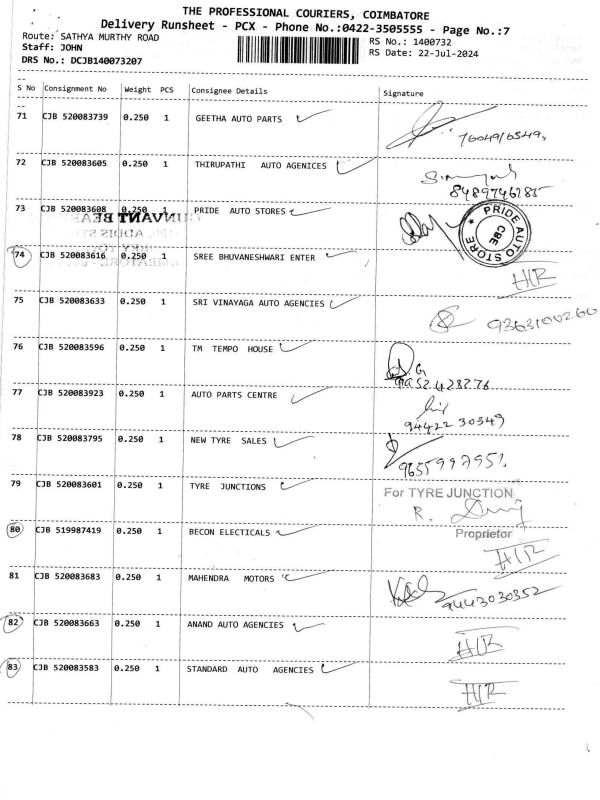 THE PROFESSIONAL COURIERS, COIMBATORE
Delivery Runsheet - PCX - Phone No.:0422-3505555 - Page No.:7
Route: SATHYA MURTHY ROAD
RS No.: 1400732
Staff: JOHN
RS Date: 22-Jul-2024
DRS No.: DCJB140073207
S No Consignment No Weight PCS Consignee Details Signature
71 CJB 520083739 0.250 1 GEETHA AUTO PARTS
72 CJB 520083605 0.250 1 THIRUPATHI AUTO AGENICES
8489746285
73 CJB 520083608 0.250 1 PRIDE AUTO STORES
PRIDE AUTO STORE CBE
74 CJB 520083616 0.250 1 SREE BHUVANESHWARI ENTER
H/R
75 CJB 520083633 0.250 1 SRI VINAYAGA AUTO AGENCIES
9363100260
76 CJB 520083596 0.250 1 TM TEMPO HOUSE
9952428276
77 CJB 520083923 0.250 1 AUTO PARTS CENTRE
94422 30349
78 CJB 520083795 0.250 1 NEW TYRE SALES
79 CJB 520083601 0.250 1 TYRE JUNCTIONS
For TYRE JUNCTION
R.
Proprietor
80 CJB 519987419 0.250 1 BECON ELECTICALS
H/R
81 CJB 520083683 0.250 1 MAHENDRA MOTORS
9443030352
82 CJB 520083663 0.250 1 ANAND AUTO AGENCIES
H/R
83 CJB 520083583 0.250 1 STANDARD AUTO AGENCIES
H/R